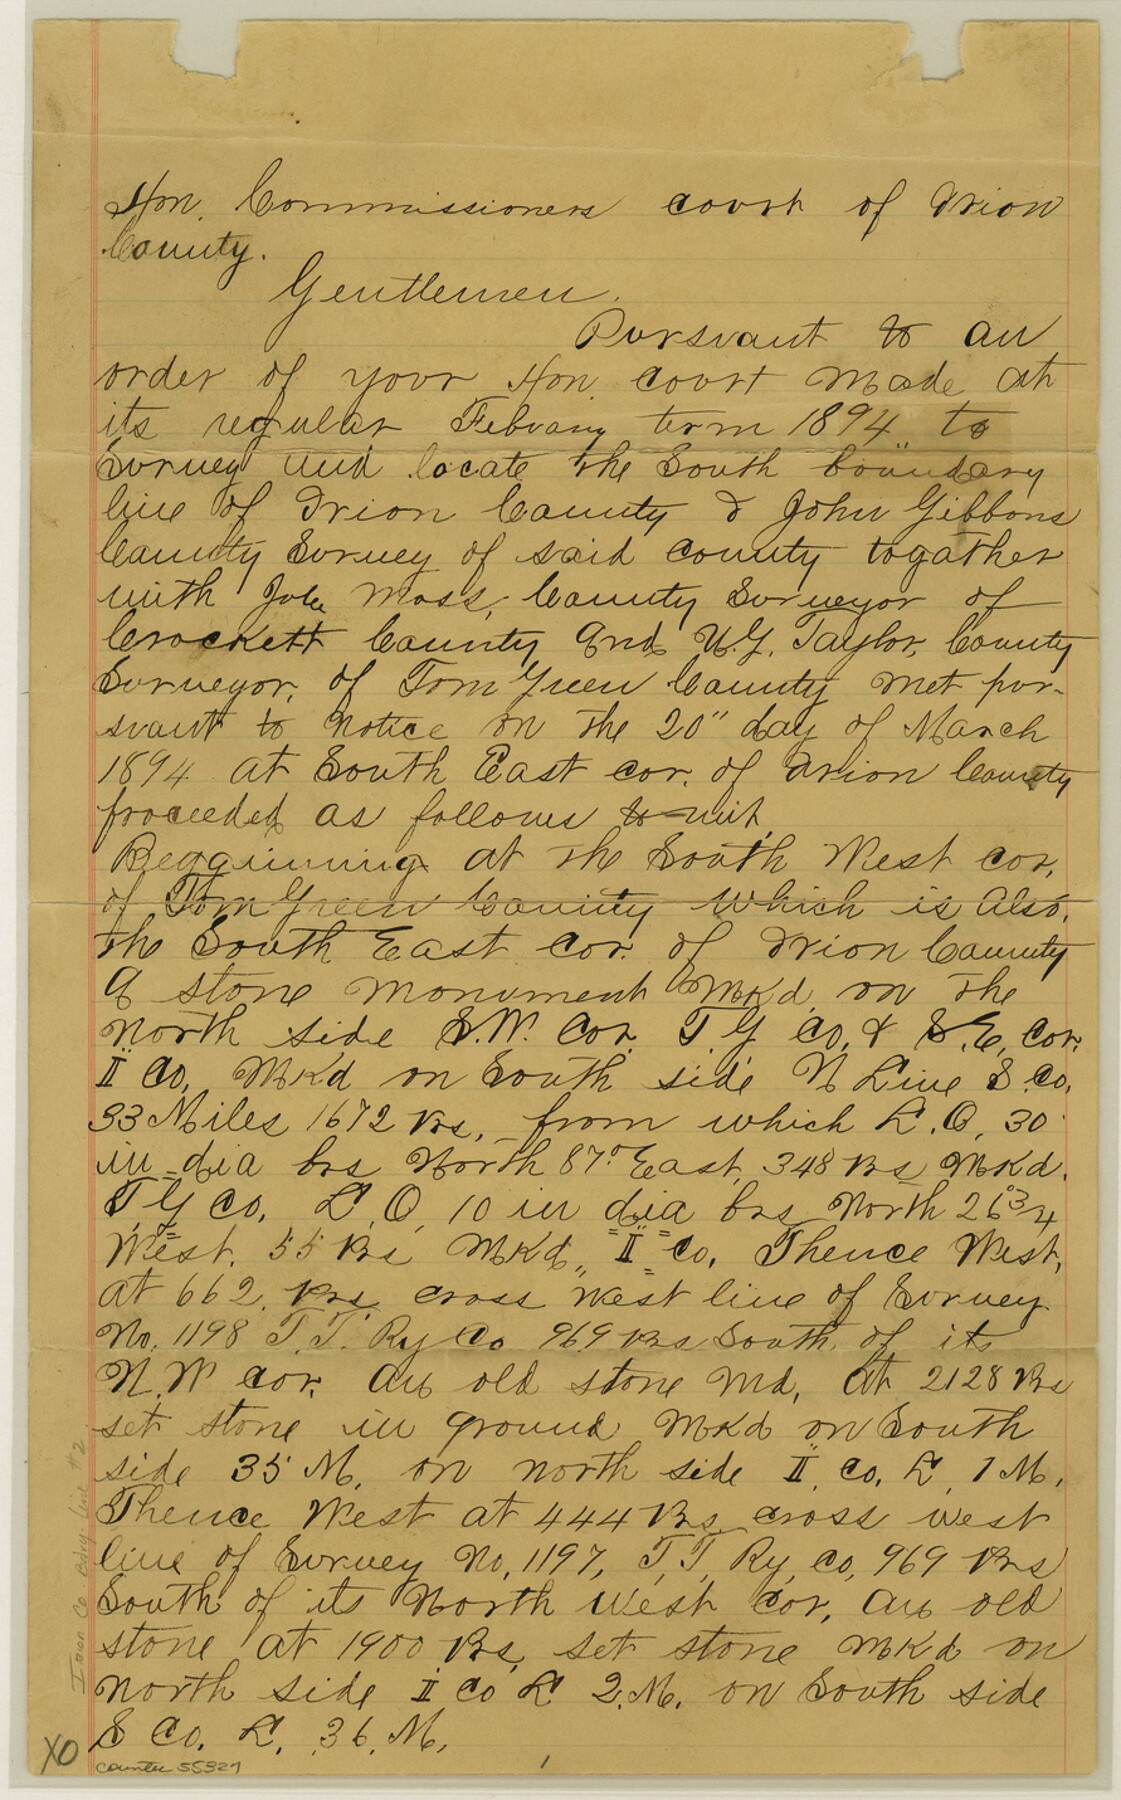 Hon. Commissioners court of Irion
County.
Gentlemen.
Pursuant to an
order of your Hon. court made at
its regular Febuary term 1894 to
Survey and locate the South boundary
line of Irion County I John Gibbons
County Survey of said county togather
with Moss, County Surveyor of
Crockett County and W.G. Taylor, County
Surveyor, of Tom Green County met pur-
suant to notice on the 20" day of March
1894 at South East cor. of Irion County
proceeded as follows to-wit,
Beggining at the South West cor.
of Tom Green County which is Also,
the South East cor. of Irion County
A stone monument Mkd on the
north side S.W. Cor. T G Co. & S.E. Cor.
II Co. Mkd on South side N Line S.Co.
33 Miles 1672 vrs. from which L.O. 30
in dia brs North 87° East 348 vrs Mkd.
T G Co. L.O. 10 in dia brs North 26°3/4
West. 55 vrs Mkd II Co. Thence West,
at 662 vrs cross west line of Survey
No. 1198 T.T. Ry Co 969 vrs South of its
N.W cor. an old stone md, at 2128 vrs
set stone in ground Mkd on South
side 35 M. on north side II Co. L 1 M.
Thence West at 444 vrs cross west
line of Survey No. 1197, T.T. Ry. Co. 969 vrs
South of its North West cor, an old
stone at 1900 vrs. set stone Mkd on
North side II Co L 2.M. on South side
S Co. L. 36. M.
Irion Co Bdry Line #2
XO
counter 55327
1